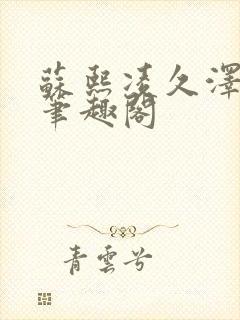 蘇熙凌久澤
筆趣閣
青雲兮